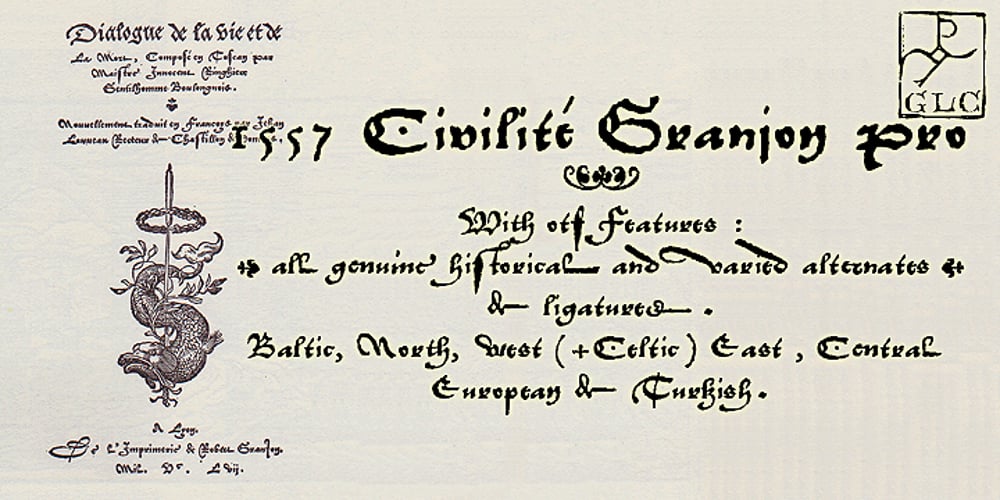 Dialogue de la vie et de
La Mort, Composé en Toscan par
Maistre Innocent Ringhier
Gentilhomme Boulongnois.
Nouvellement traduit en Francoys par Jehan
Louveau Recteur de Chastillon de
1557 Civilité Granjon pro
GLC
With otf Features :
all genuine historical and varied alternates
& ligatures .
Baltic, North, west (+Celtic) East , Central
European & Turkish.
A Lyon,
De l'Imprimerie de Robert Granjon.
Mil. Vc. Lvij.